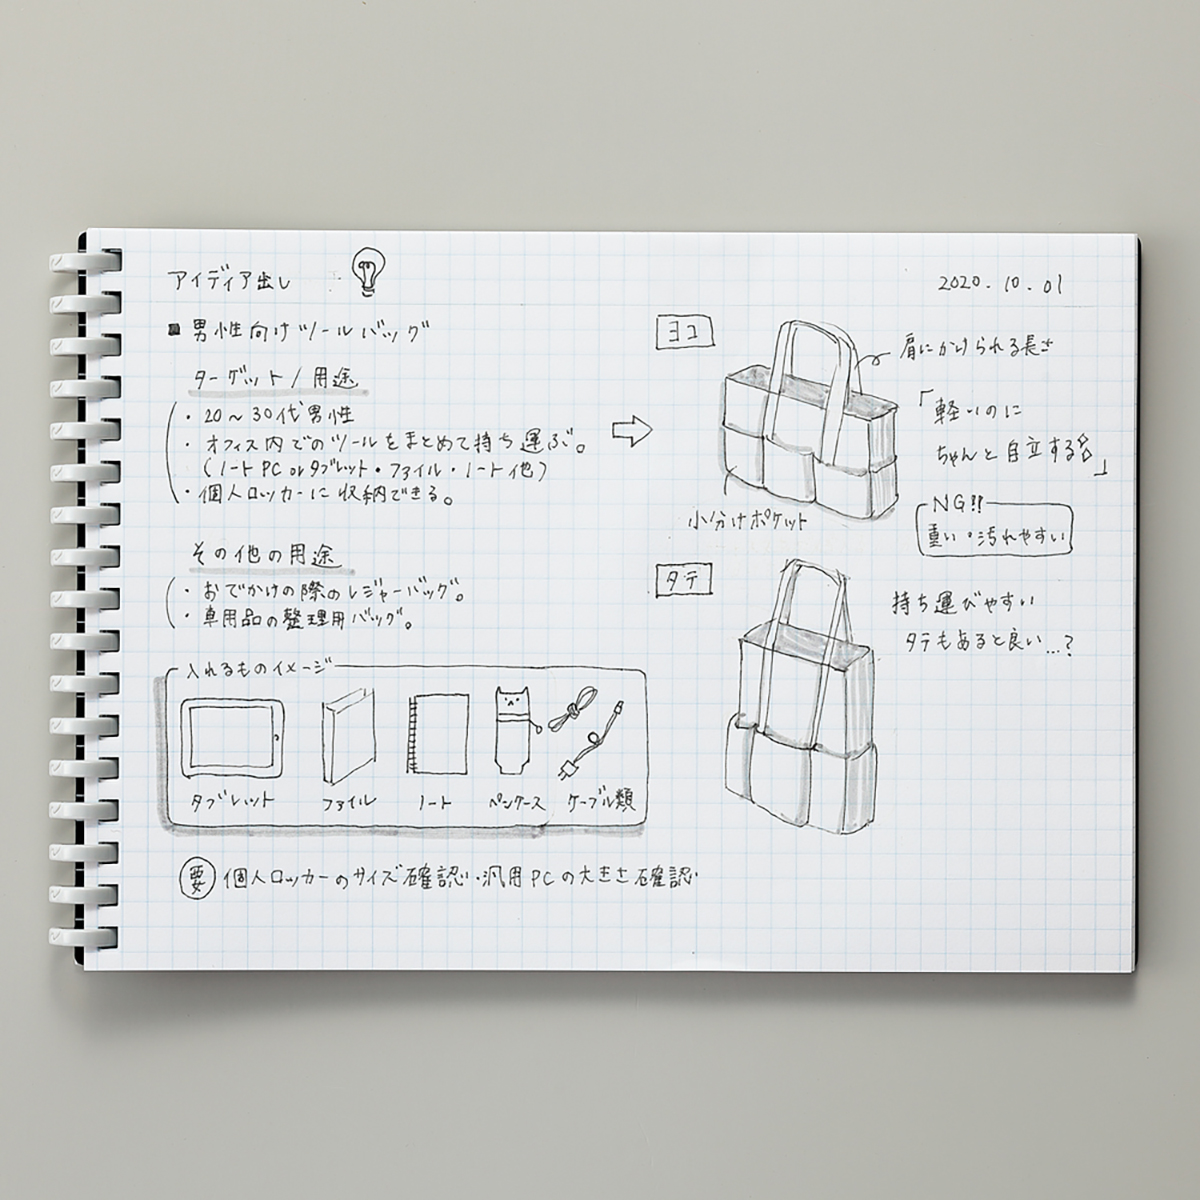 アイディア出し
2020.10.01
■ 男性向けツールバッグ
ターゲット/用途
・20〜30代男性
・オフィス内でのツールをまとめて持ち運ぶ。
(ノートPC orタブレット・ファイル・ノート他)
・個人ロッカーに収納できる。
その他の用途
・おでかけの際のレジャーバッグ。
・車用品の整理用バッグ。
入れるものイメージ
タブレット
ファイル
ノート
ペンケース
ケーブル類
要 個人ロッカーのサイズ確認・汎用PCの大きさ確認
ヨコ
肩にかけられる長さ
「軽いのに
ちゃんと自立する」
小分けポケット
NG!!
重い・汚れやすい
タテ
持ち運びやすい
タテもあると良い…?